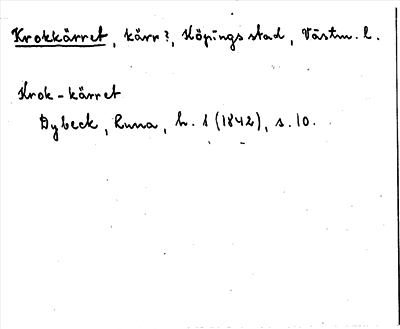 Krokkärret, kärr?, Köpings stad, Västm. l.
Krok-kärret
Dybeck, Runa, h. 1 (1842), s. 10.